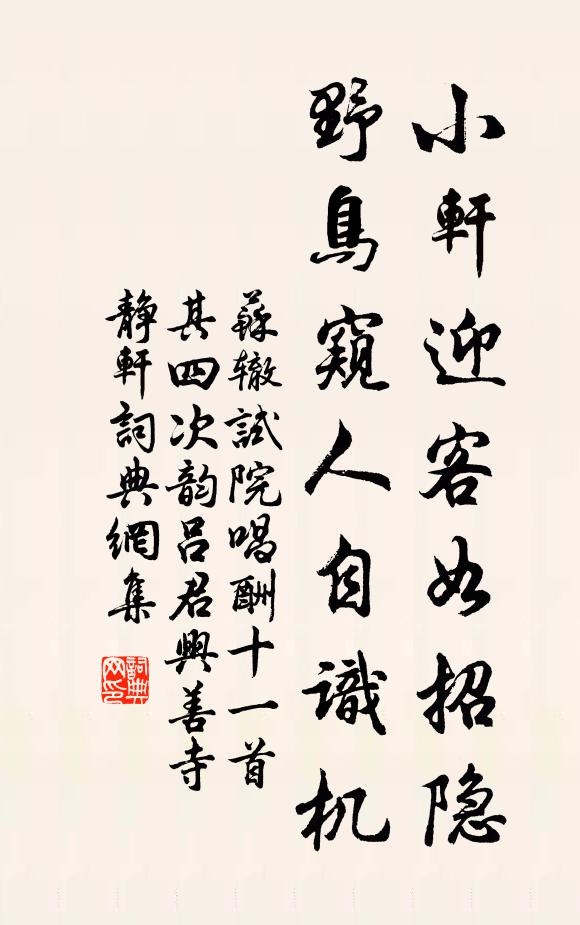 小軒迎客如招隐
野鳥窺人自識机
蘇辙試院唱酬十一首
其四次韵吕君興善寺
静軒詞典網集
詞典网印